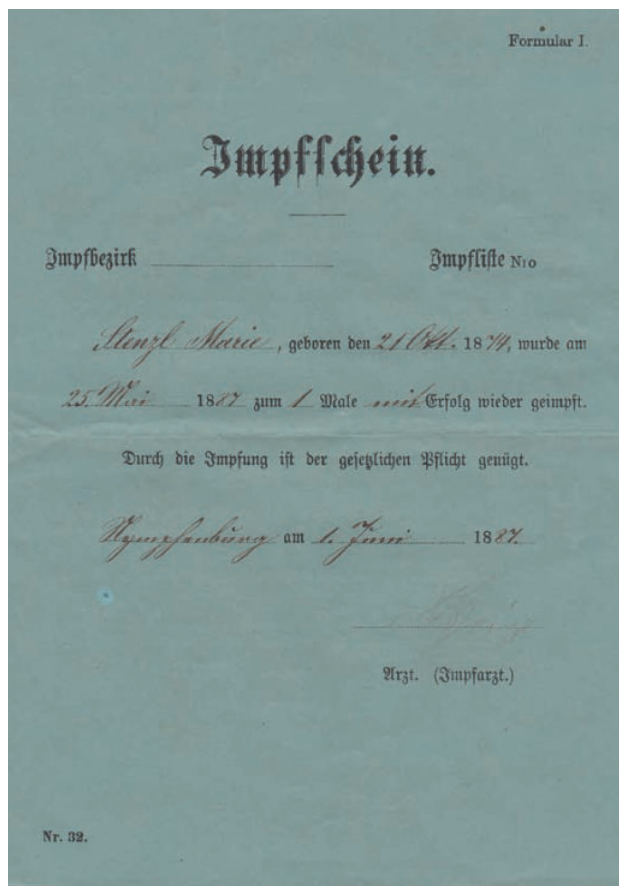 Formular I.
Impfschein.
Impfbezirk Impfliste No
Stenzl Marie, geboren den 21 Okt. 1874, wurde am
25. Mai 1887 zum 1 Male mit Erfolg wieder geimpft.
Durch die Impfung ist der gesetzlichen Pflicht genügt.
Nymphenburg am 1. Juni 1887.
Arzt. (Impfarzt.)
Nr. 32.